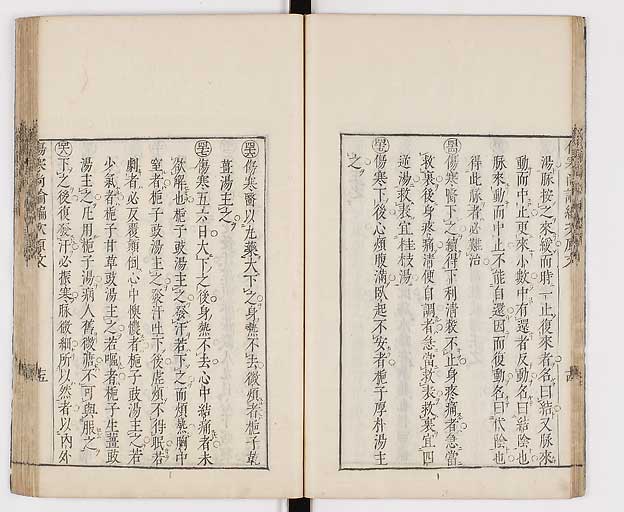 湯脉按之來緩而時一止復來者名曰結又脉來
動而中止更來小數中有還者反動名曰結陰也
脉來動而中止不能自還因而復動名曰代陰也
得此脉者必難治
傷寒醫下之續得下利清穀不止身疼痛者急當
救裏後身疼痛清便自調者急當救表救裏宜四
逆湯救表宜桂枝湯
傷寒下後心煩腹滿臥起不安者梔子厚朴湯主
之
傷寒醫以丸藥大下之身熱不去微煩者梔子乾
薑湯主之
傷寒五六日大下之後身熱不去心中結痛者未
欲解也梔子豉湯主之發汗若下之而煩熱胸中
窒者梔子豉湯主之發汗吐下後虛煩不得眠若
劇者必反覆顛倒心中懊憹者梔子豉湯主之若
少氣者梔子甘草豉湯主之若嘔者梔子生薑豉
湯主之凡用梔子湯病人舊微溏不可與服之
下之後復發汗必振寒脉微細所以然者以內外